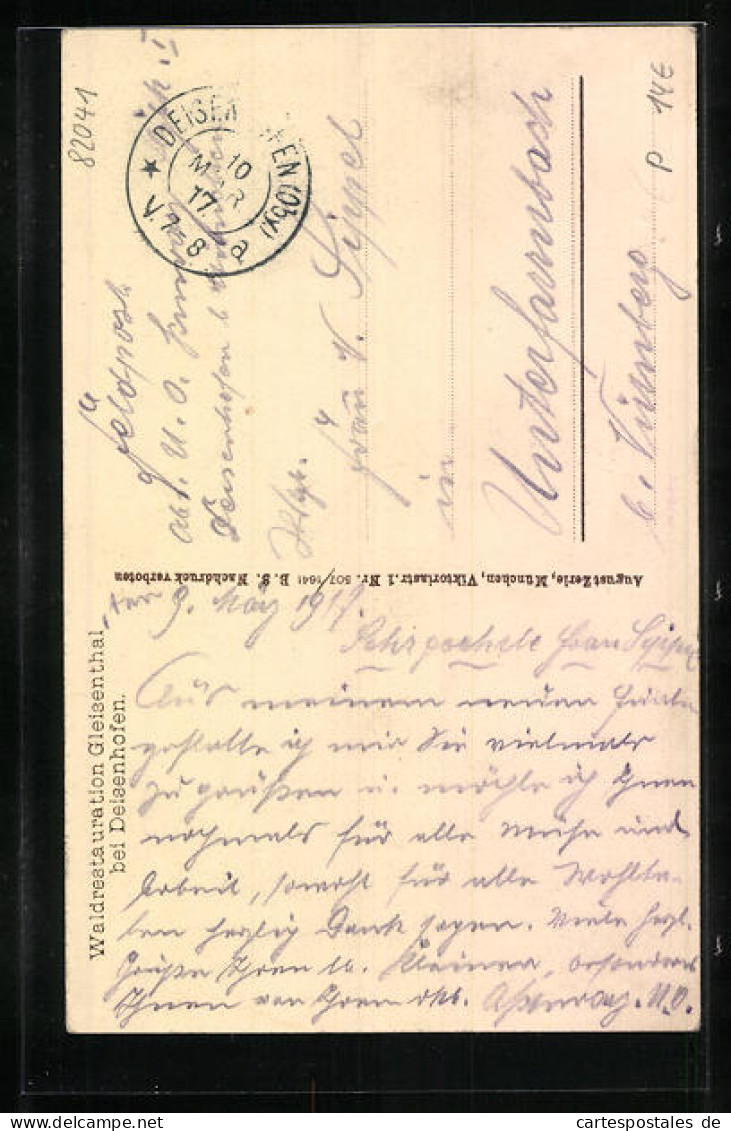 82041
P 14€
DEISENHOFEN (OBY.)
10
MAR
17.
V. 7-8
a
Feldpost
Abt. U. O.
Deisenhofen b.
Frau V. Sippel
in
Unterfarrnbach
b. Nürnberg
August Zerle, München, Viktoriastr. 1 Nr. 507/1641 B. S. Nachdruck verboten
Waldrestauration Gleisenthal
bei Deisenhofen.
den 9. März 1917.
Sehr geehrte Frau Sippel
Aus meinem neuen
gestatte ich mir Sie vielmals
zu grüßen u. möchte ich Ihnen
nochmals für alle Mühe und
Arbeit, sowohl für alle Wohlta-
ten herzlig Dank sagen. Viele herzl.
Grüße Ihren lb. Kleinen, besonders
Ihnen von Ihrem dkb. U.O.
cartespostales.de